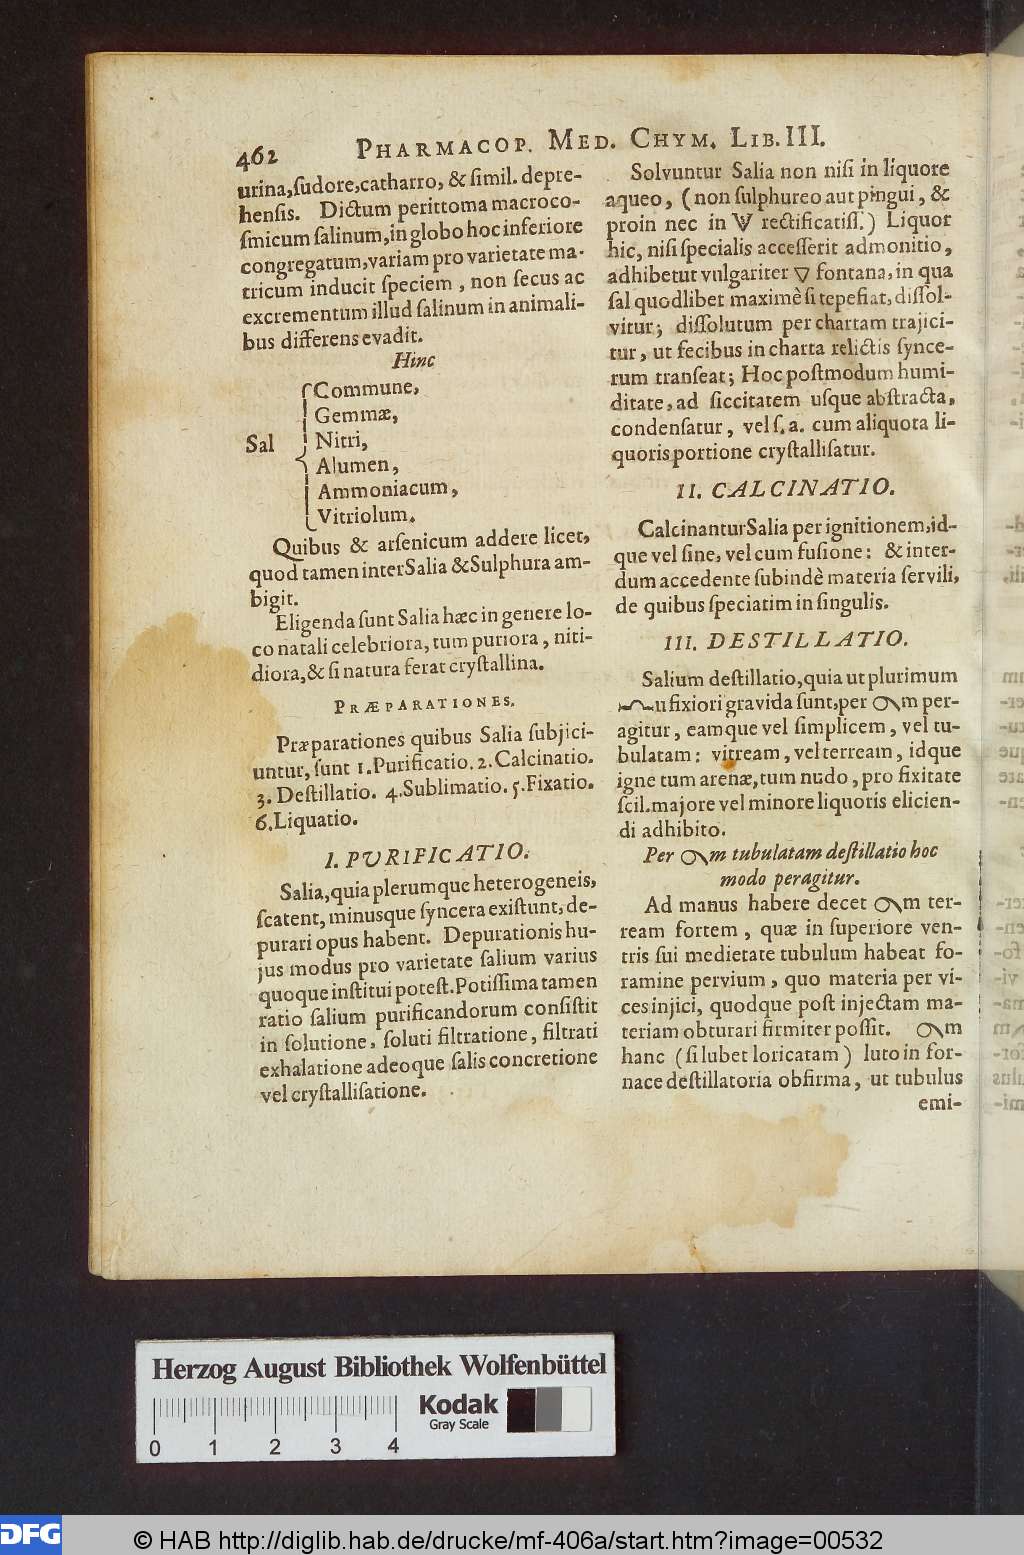 462 PHARMACOP. MED. CHYM. LIB. III.
urina, ſudore, catharro, & ſimil. depre-
henſis. Dictum perittoma macroco-
ſmicum ſalinum, in globo hoc inferiore
congregatum, variam pro varietate ma-
tricum inducit ſpeciem, non ſecus ac
excrementum illud ſalinum in animali-
bus differens evadit.
Hinc
Sal
Commune,
Gemmæ,
Nitri,
Alumen,
Ammoniacum,
Vitriolum.
Quibus & arſenicum addere licet,
quod tamen inter Salia & Sulphura am-
bigit.
Eligenda ſunt Salia hæc in genere lo-
co natali celebriora, tum puriora, niti-
diora, & ſi natura ferat cryſtallina.
PRÆPARATIONES.
Præparationes quibus Salia ſubjici-
untur, ſunt 1. Purificatio. 2. Calcinatio.
3. Deſtillatio. 4. Sublimatio. 5. Fixatio.
6. Liquatio.
I. PURIFICATIO.
Salia, quia plerumque heterogeneis,
ſcatent, minusque ſyncera exiſtunt, de-
purari opus habent. Depurationis hu-
jus modus pro varietate ſalium varius
quoque inſtitui poteſt. Potiſſima tamen
ratio ſalium purificandorum conſiſtit
in ſolutione, ſoluti filtratione, filtrati
exhalatione adeoque ſalis concretione
vel cryſtalliſatione.
Solvuntur Salia non niſi in liquore
aqueo, (non ſulphureo aut pingui, &
proin nec in rectificatiſſ.) Liquor
hic, niſi ſpecialis acceſſerit admonitio,
adhibetut vulgariter 🜄 fontana, in qua
ſal quodlibet maximè ſi tepefiat, diſſol-
vitur; diſſolutum per chartam trajici-
tur, ut fecibus in charta relictis ſynce-
rum tranſeat; Hoc poſtmodum humi-
ditate, ad ſiccitatem uſque abſtracta,
condenſatur, vel ſ. a. cum aliquota li-
quoris portione cryſtalliſatur.
II. CALCINATIO.
Calcinantur Salia per ignitionem, id-
que vel ſine, vel cum fuſione: & inter-
dum accedente ſubindè materia ſervili,
de quibus ſpeciatim in ſingulis.
III. DESTILLATIO.
Salium deſtillatio, quia ut plurimum
u fixiori gravida ſunt, per m per-
agitur, eamque vel ſimplicem, vel tu-
bulatam: vitream, vel terream, idque
igne tum arenæ, tum nudo, pro fixitate
ſcil. majore vel minore liquoris elicien-
di adhibito.
Per m tubulatam deſtillatio hoc
modo peragitur.
Ad manus habere decet m ter-
ream fortem, quæ in ſuperiore ven-
tris ſui medietate tubulum habeat fo-
ramine pervium, quo materia per vi-
ces injici, quodque poſt injectam ma-
teriam obturari firmiter poſſit. m
hanc (ſi lubet loricatam) luto in for-
nace deſtillatoria obfirma, ut tubulus
emi-
Herzog August Bibliothek Wolfenbüttel
Kodak
Gray Scale
0 1 2 3 4
DFG
© HAB http://diglib.hab.de/drucke/mf-406a/start.htm?image=00532